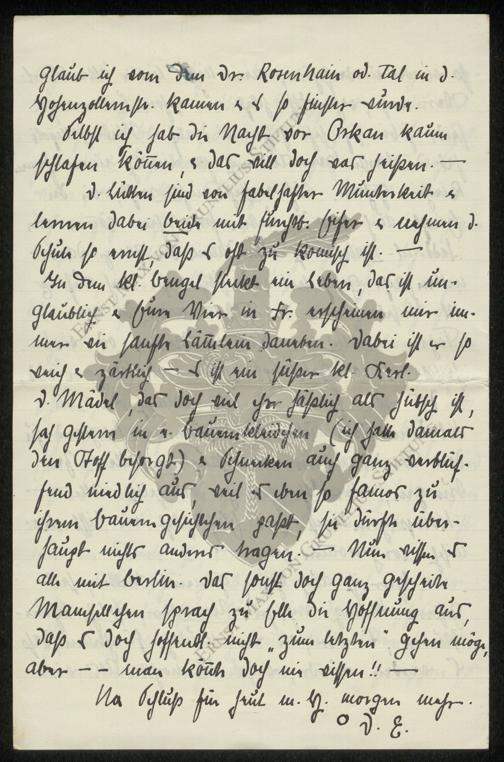 glaub ich von dem Dr. Rosenhain od. Tal in d.
Hohenzollernstr. kamen u. es so finster wurde.
Selbst ich hab die Nacht vor Orkan kaum
schlafen können, u. das will doch was heißen. —
D. beiden sind von fabelhafter Munterkeit u.
lernen dabei beide mit furchtb. Eifer u. nehmen d.
Schule so ernst, daß es oft zu komisch ist. —
In dem kl. Bengel steckt ein Leben, das ist un-
glaublich u. Eure Vier in Fr. erscheinen mir im-
mer wie sanfte Lämmlein daneben. Dabei ist er so
weich u. zärtlich — es ist ein süßer kl. Kerl.
D. Mädel, das doch viel eher häßlich als hübsch ist,
sah gestern in e. Bauernkleidchen (ich hatte damals
den Stoff besorgt) u. Schnecken auch ganz verblüf-
fend niedlich aus, weil es eben so famos zu
ihrem Bauerngesichtchen paßt, sie dürfte über-
haupt nichts anderes tragen. — Nun wissen es
alle mit Berlin. Das sonst doch ganz gescheite
Mamsellchen sprach zu Elle die Hoffnung aus,
daß es doch hoffentl. nicht „zum letzten" gehen möge,
aber — — man könnte doch nie wissen!! —
Na Schluß für heut m. H. morgen mehr.
D. E.